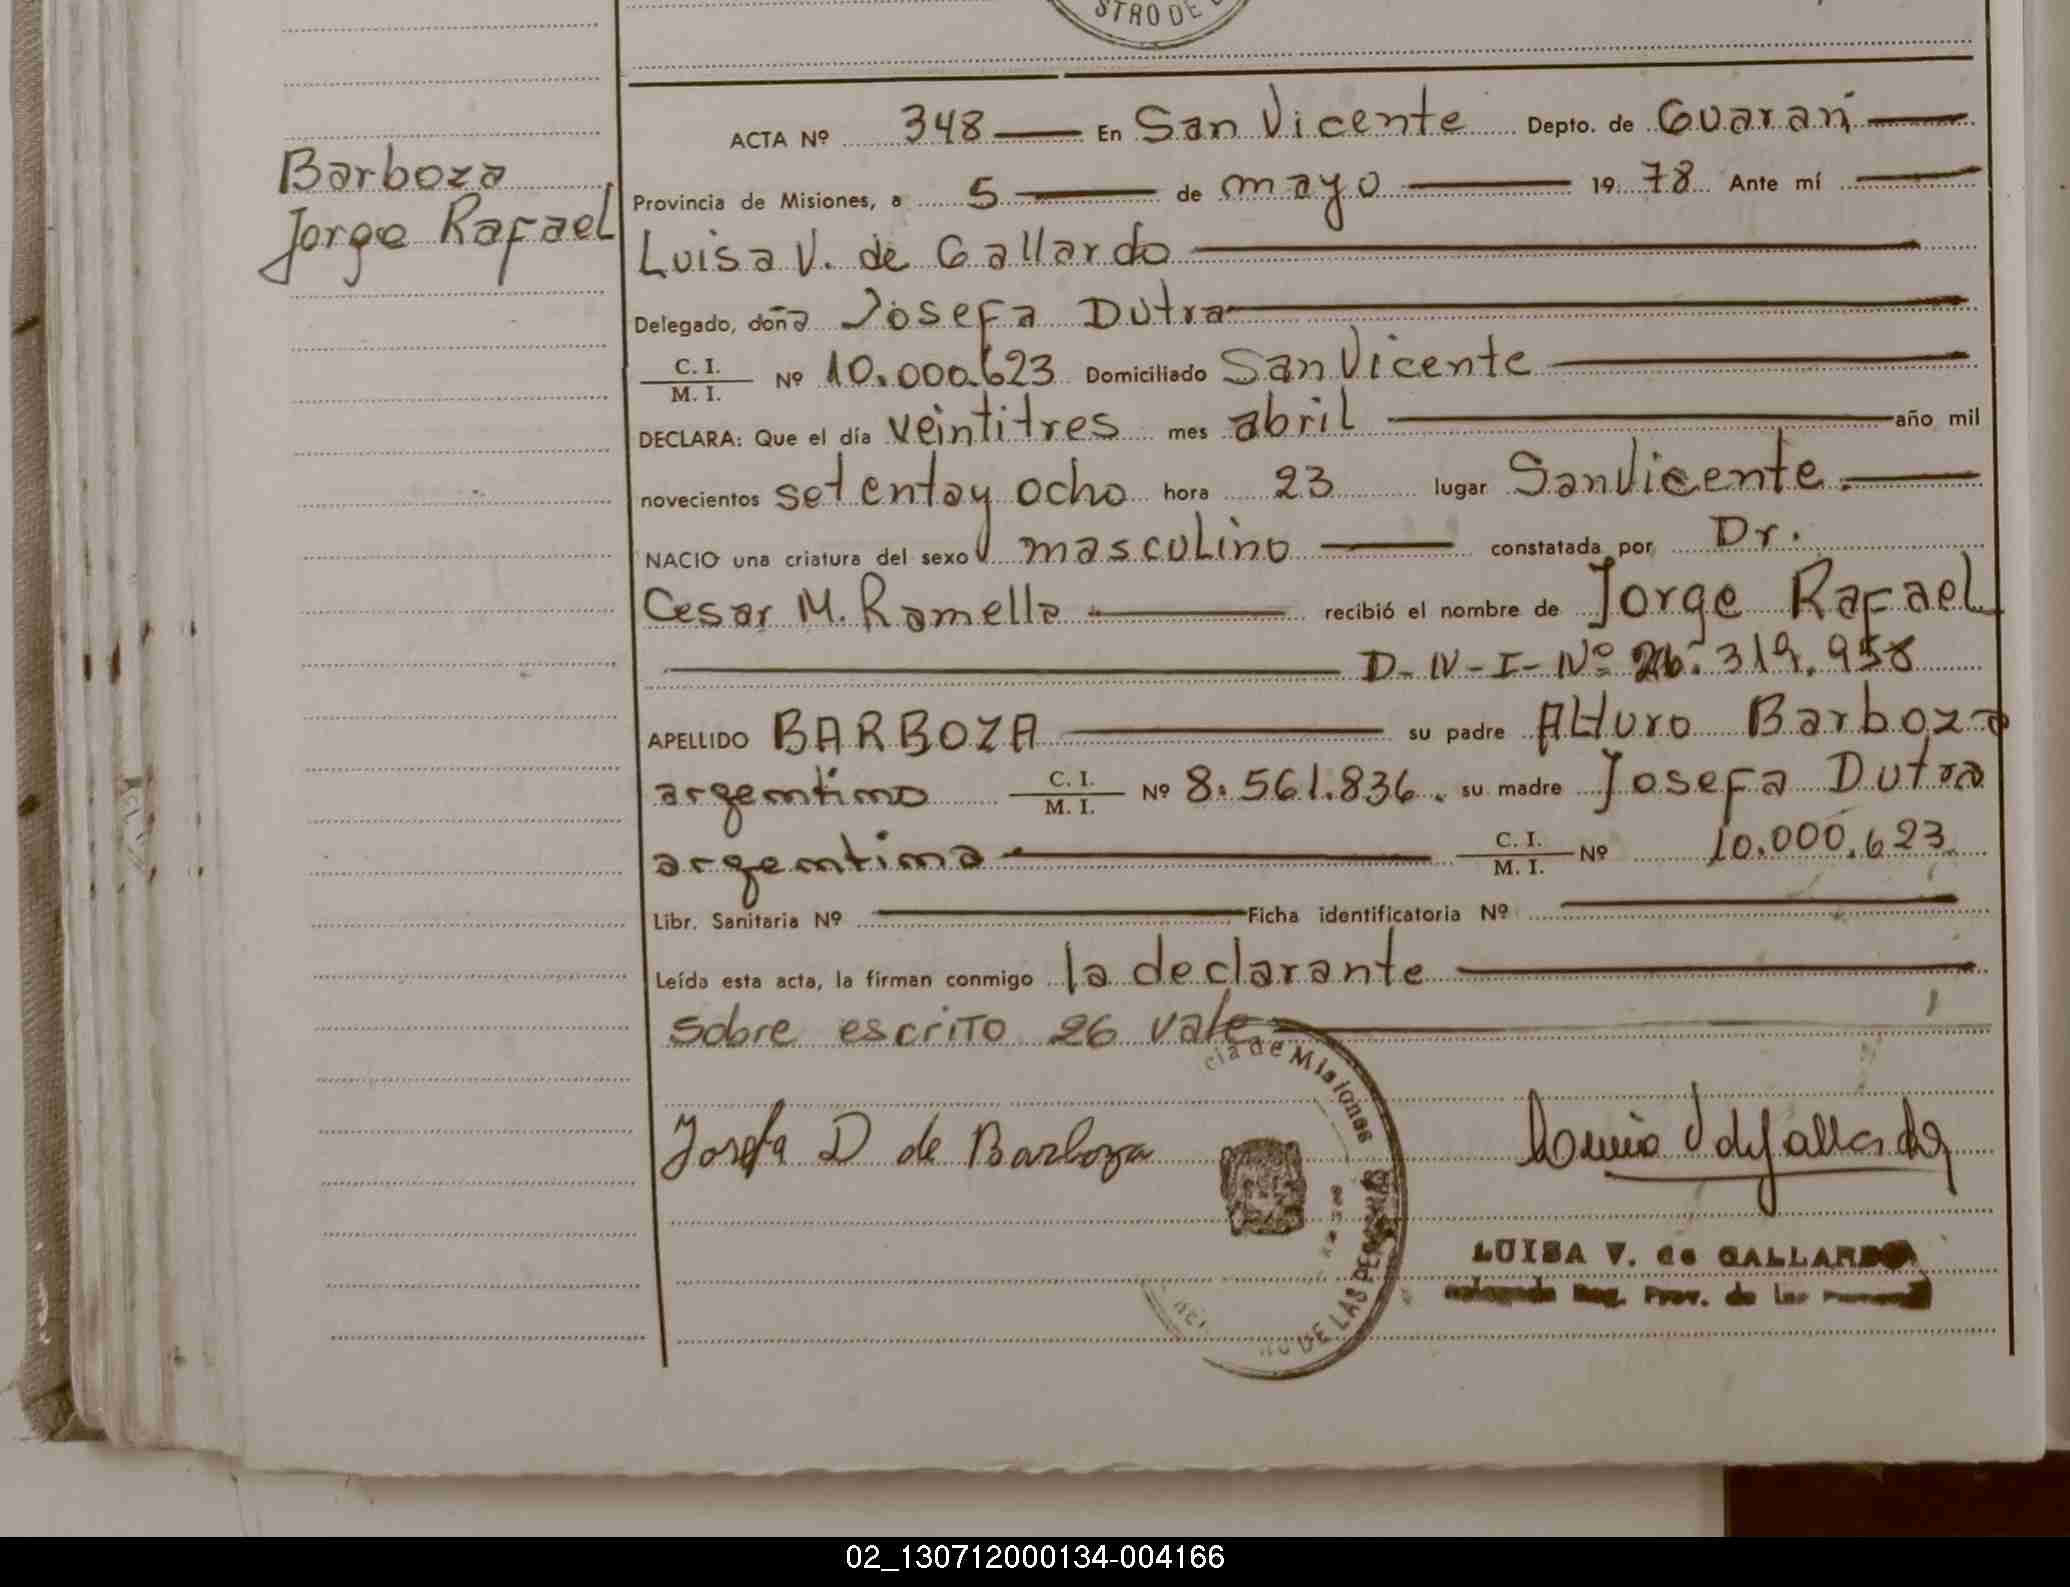 STRO DE
Barboza
Jorge Rafael
ACTA Nº 348 En San Vicente Depto. de Guaraní
Provincia de Misiones, a 5 de mayo 19 78 Ante mí
Luisa V. de Gallardo
Delegado, doña Josefa Dutra
C. I.
M. I. Nº 10.000.623 Domiciliado San Vicente
DECLARA: Que el día veintitres mes abril año mil
novecientos setenta y ocho hora 23 lugar San Vicente.
NACIO una criatura del sexo masculino constatada por Dr.
Cesar M. Ramella recibió el nombre de Jorge Rafael
D-N-I-Nº 26.319.958
APELLIDO BARBOZA su padre Arturo Barboza
argentino C. I. M. I. Nº 8.561.836. su madre Josefa Dutra
argentina C. I. M. I. Nº 10.000.623
Libr. Sanitaria Nº Ficha identificatoria Nº
Leída esta acta, la firman conmigo la declarante
sobre escrito 26 vale
cia de Misiones
Josefa D de Barboza
DE LAS PERSONAS
LUISA V. de GALLARDO
Delegada Reg. Prov. de las Personas
02_130712000134-004166